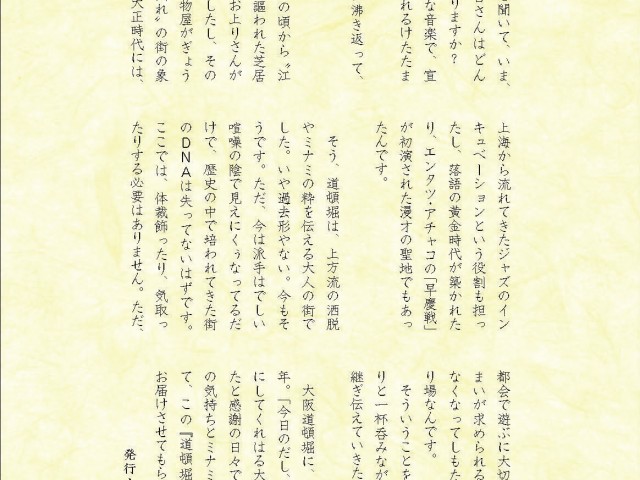 聞いて、いま、
さんはどん
りますか？
な音楽で、宣
れるけたたま
沸き返って、
の頃から〝江
謳われた芝居
お上りさんが
したし、その
物屋がぎょう
れ〟の街の象
大正時代には、
上海から流れてきたジャズのイン
キュベーションという役割も担っ
たし、落語の黄金時代が築かれた
り、エンタツ・アチャコの「早慶戦」
が初演された漫才の聖地でもあっ
たんです。
そう、道頓堀は、上方流の洒脱
やミナミの粋を伝える大人の街で
した。いや過去形やない。今もそ
うです。ただ、今は派手はでしい
喧噪の陰で見えにくぅなってるだ
けで、歴史の中で培われてきた街
のDNAは失ってないはずです。
ここでは、体裁飾ったり、気取っ
たりする必要はありません。ただ、
都会で遊ぶに大切
まいが求められる
なくなってしもた
り場なんです。
そういうことを
りと一杯呑みなが
継ぎ伝えていきた
大阪道頓堀に、
年。「今日のだし、
にしてくれはる大
たと感謝の日々で
の気持ちとミナミ
て、この『道頓堀
お届けさせてもら
発行